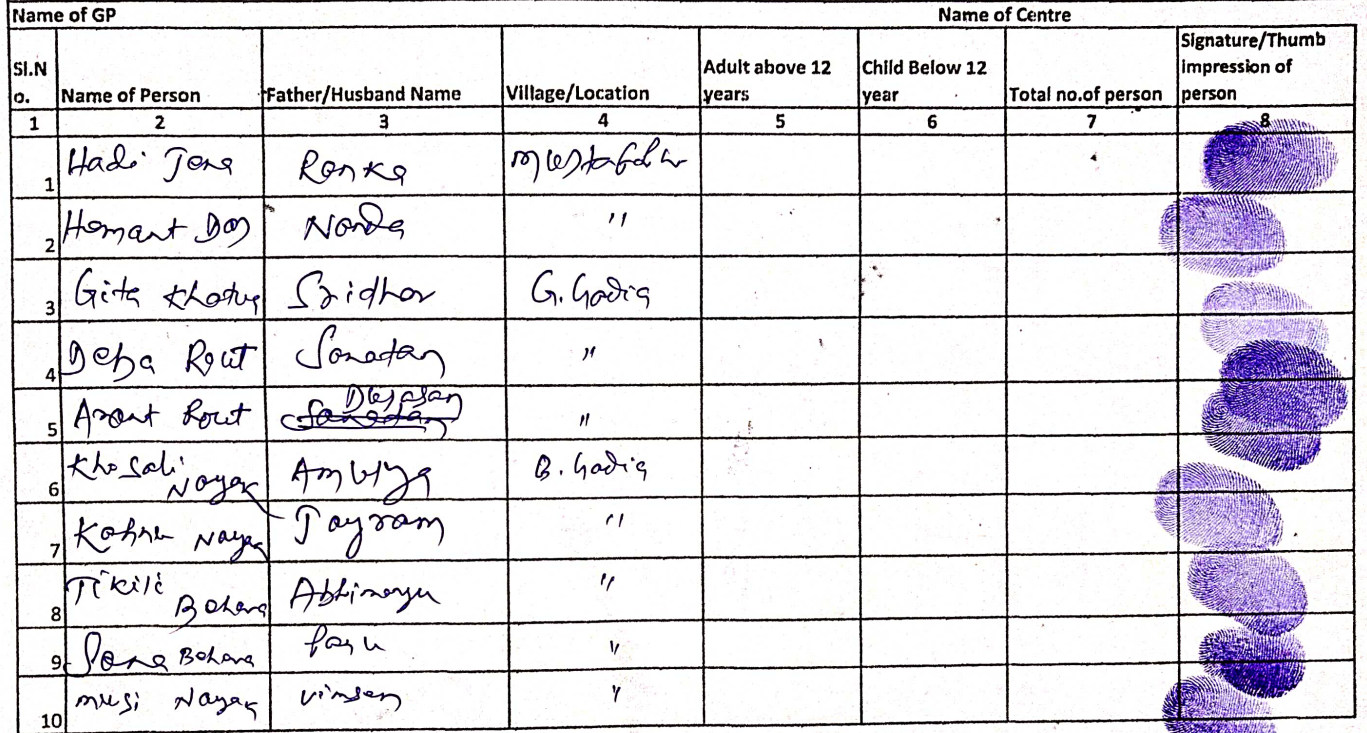 Name of GP Name of Centre
Sl.No. Name of Person Father/Husband Name Village/Location Adult above 12 years Child Below 12 year Total no.of person Signature/Thumb impression of person
1 2 3 4 5 6 7 8
1 Hadi Jena Ranka
2 Hemant Das Nanda "
3 Gita Khatua Sridhar G. Gadia
4 Deba Rout Sanatan "
5 Rout Sanatan "
6 Nayak B. Gadia
7 Nayak Jayram "
8 Tikili Behera Abhimanyu "
9 Sana Behera "
10 Musi Nayak Vimsen "